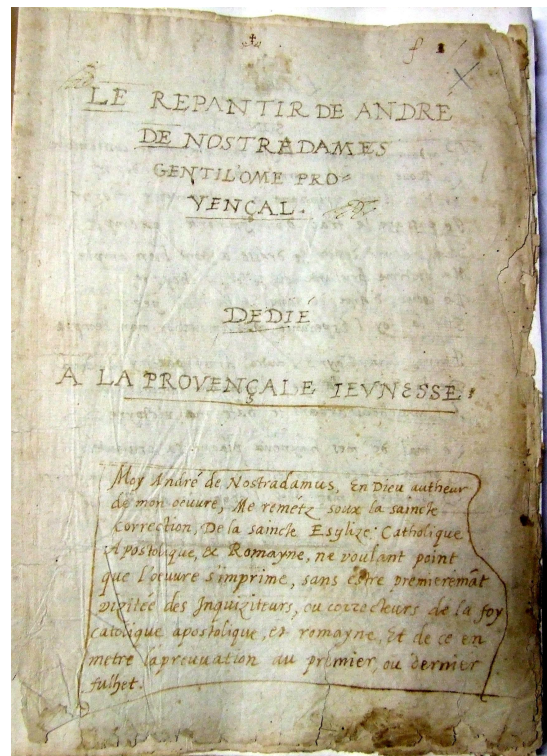 f 1
LE REPANTIR DE ANDRE
DE NOSTREDAMES
GENTILOME PRO=
VENÇAL.
DEDIÉ
A LA PROVENÇALE IEVNESSE:
Moy André de Nostradamus, En Dieu autheur
de mon oeuvre, Me remétz soux la saincte
correction, De la saincte Esglize Catholique
Apostolique, & Romayne, ne voulant point
que l'oeuvre s'imprime, sans estre premieremãt
vizitée des Inquiziteurs, ou correcteurs de la foy
catolique apostolique, et romayne, Et de ce en
metre l'apreuvation au premier, ou dernier
fulhet.